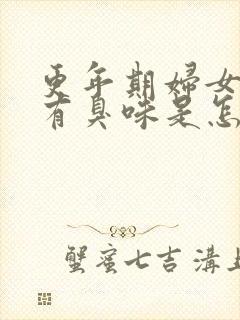 更年期婦女
有臭味是怎
蟹蜜七吉溝上